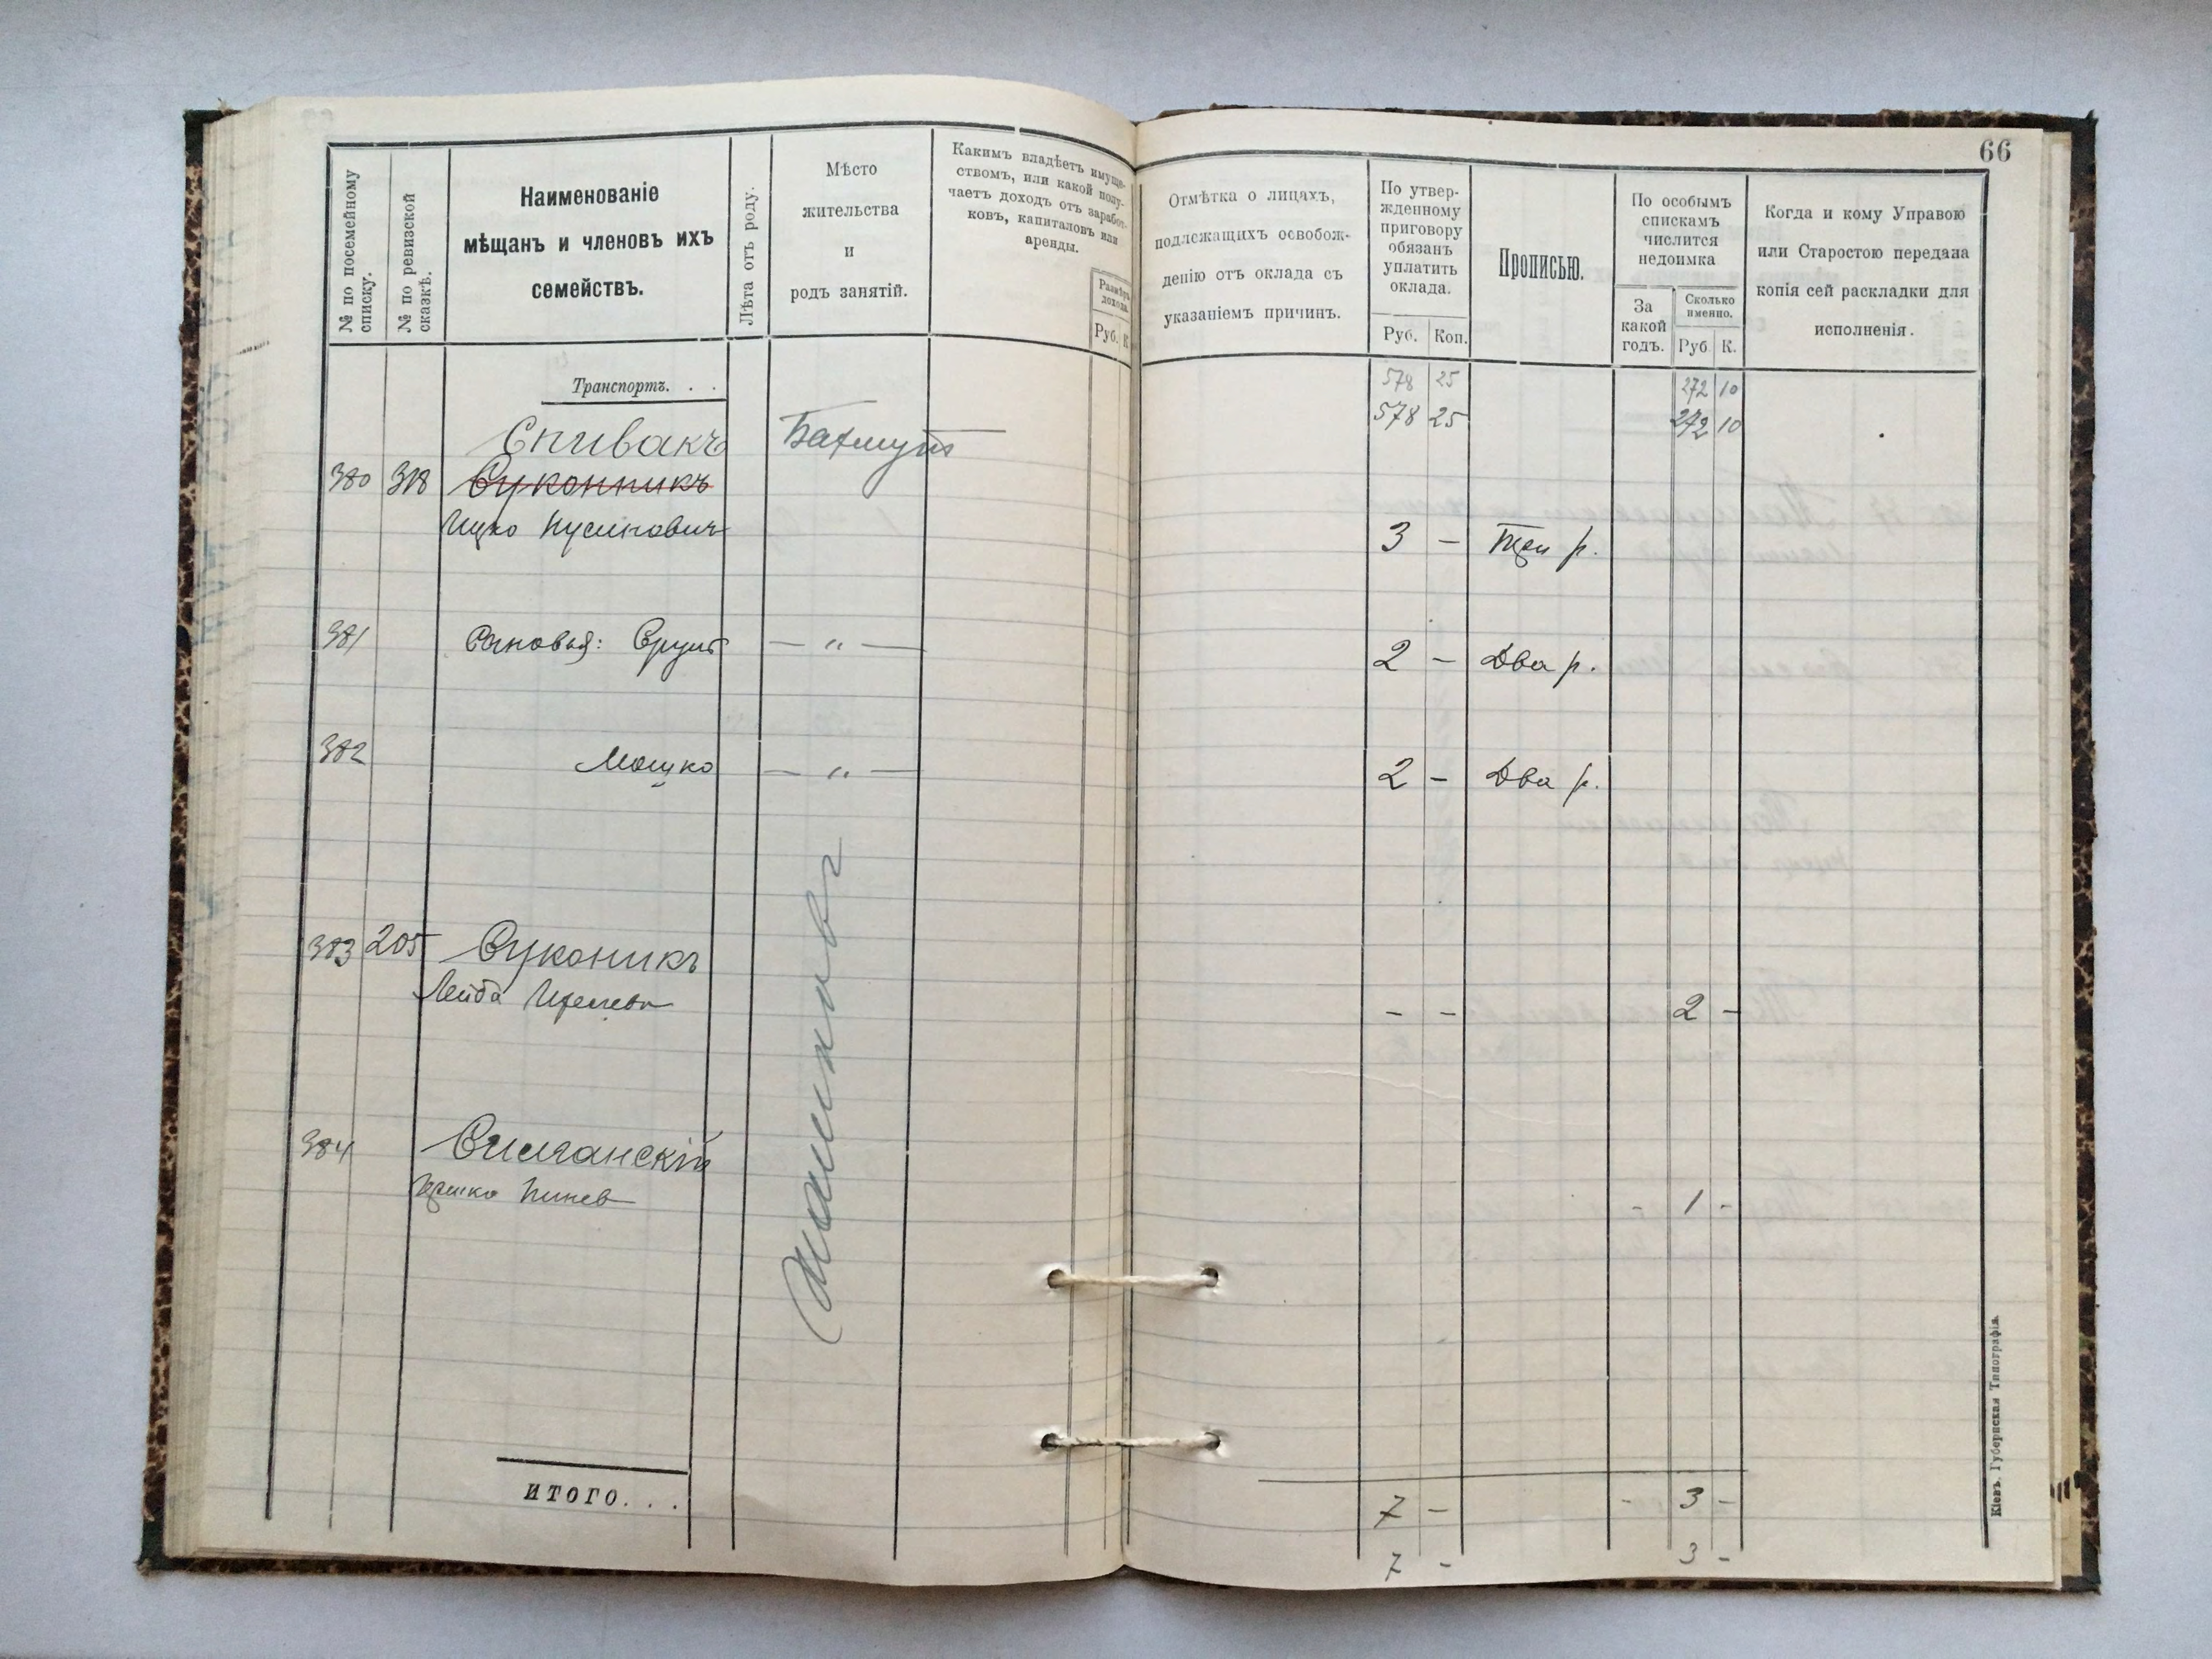 66
№ по посемейному
списку.
№ по ревизской
сказкѣ.
Наименованіе
мѣщанъ и членовъ ихъ
семействъ.
Лѣта отъ роду.
Мѣсто
жительства
и
родъ занятій.
Какимъ владѣетъ имуще-
ствомъ, или какой полу-
чаетъ доходъ отъ заработ-
ковъ, капиталовъ или
аренды.
Размѣръ
дохода.
Руб. К
Отмѣтка о лицахъ,
подлежащихъ освобож-
денію отъ оклада съ
указаніемъ причинъ.
По утвер-
жденному
приговору
обязанъ
уплатить
оклада.
Руб. Коп.
Прописью.
По особымъ
спискамъ
числится
недоимка
За
какой
годъ.
Сколько
именно.
Руб К.
Когда и кому Управою
или Старостою передана
копія сей раскладки для
исполненія.
Транспортъ. . .
578 25 272 10
578 25 272 10
Спивакъ Бахмутъ
380 318 Суконникъ
Ицко Нусинович 3 – Три р.
381 Сыновья: Сруль — „ — 2 – Два р.
382 Мошко — „ — 2 – Два р.
383 205 Суконикъ
Лейба - - 2 -
384
Пинев - 1 -
ИТОГО. . .
7 – - 3 –
7 - 3 -
Кіевъ. Губернская Типографія.